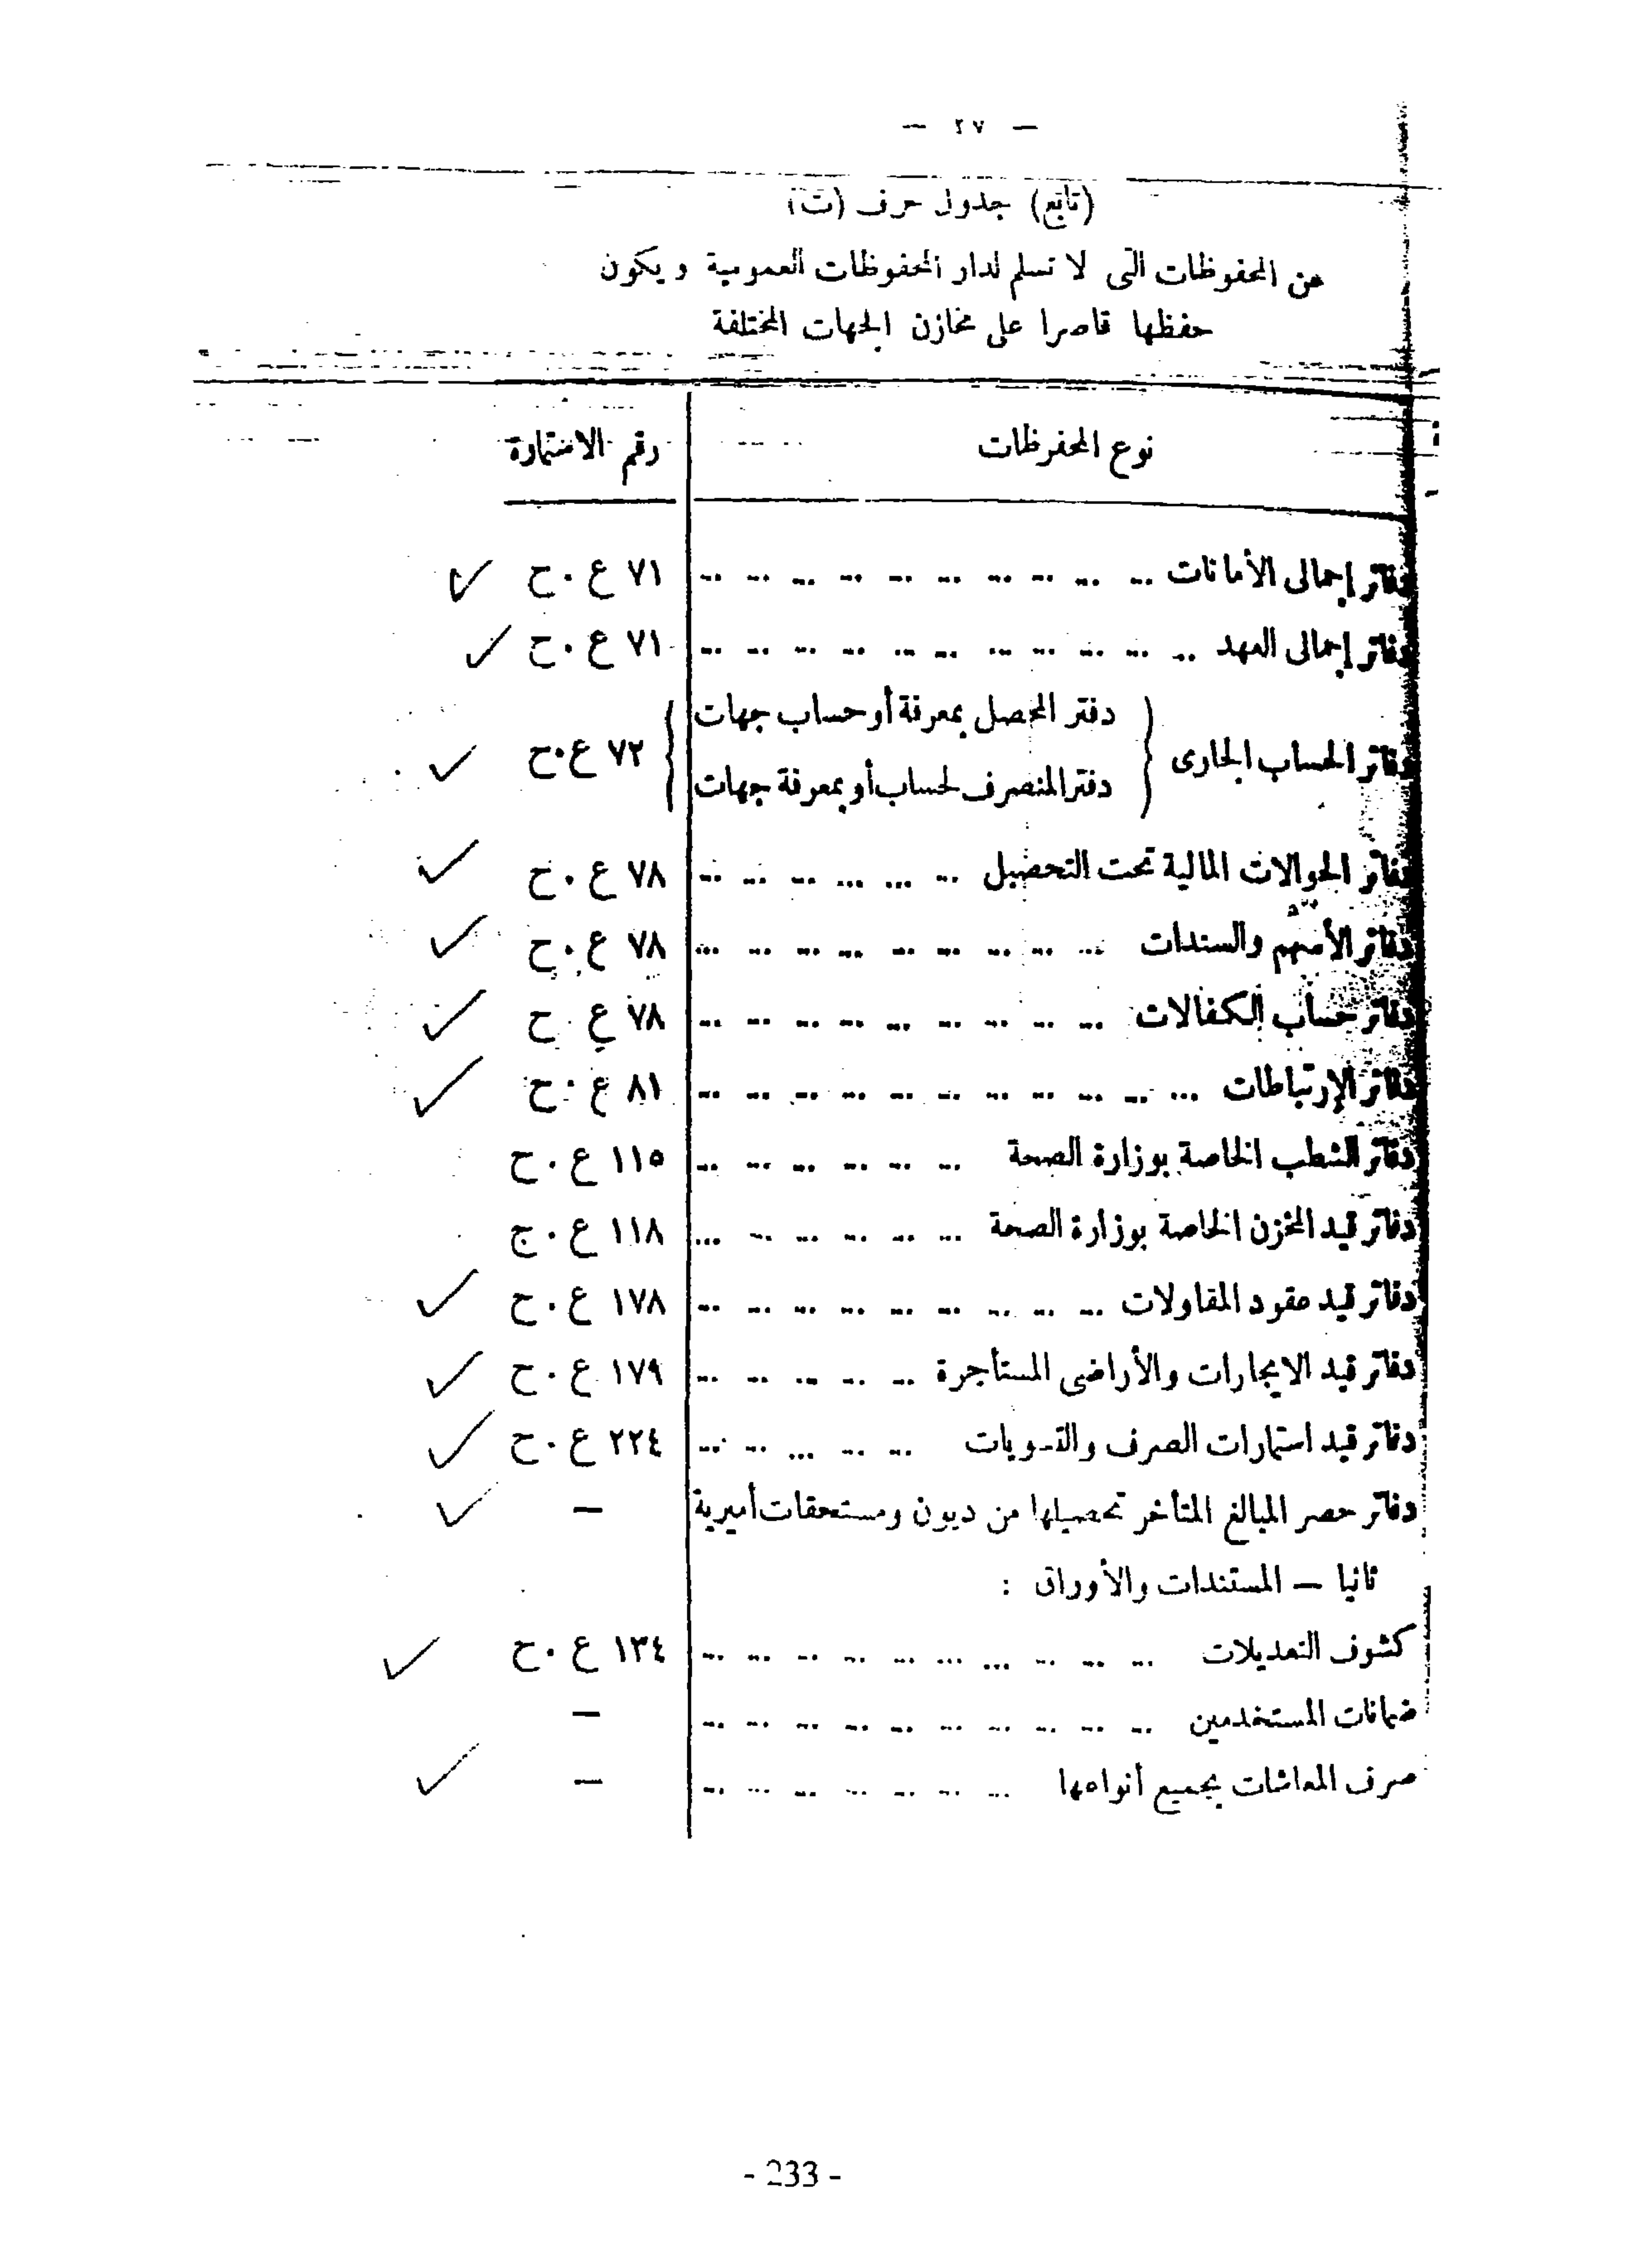 — ٢٧ —
(تابع) جدول حرف (ت)
من المحفوظات التى لا تسلم لدار المحفوظات العمومية ويكون
حفظها قاصرا على مخازن الجهات المختلفة
نوع المحفوظات رقم الاستمارة
دفاتر إجمالى الأمانات ... ٧١ ع.ح ✓
دفاتر إجمالى العهد ... ٧١ ع.ح ✓
دفاتر الحساب الجارى { دفتر المحصل بمعرفة أو حساب جهات
دفتر المنصرف لحساب أو بمعرفة جهات } ٧٢ ع.ح ✓
دفاتر الحوالات المالية تحت التحصيل ... ٧٨ ع.ح ✓
دفاتر الأسهم والسندات ... ٧٨ ع.ح ✓
دفاتر حساب الكفالات ... ٧٨ ع.ح ✓
دفاتر الإرتباطات ... ٨١ ع.ح ✓
دفاتر الشطب الخاصة بوزارة الصحة ... ١١٥ ع.ح
دفاتر قيد المخزن الخاصة بوزارة الصحة ... ١١٨ ع.ح
دفاتر قيد عقود المقاولات ... ١٧٨ ع.ح ✓
دفاتر قيد الايجارات والأراضى المستأجرة ... ١٧٩ ع.ح ✓
دفاتر قيد استمارات الصرف والتسويات ... ٢٢٤ ع.ح ✓
دفاتر حصر المبالغ المتأخر تحصيلها من ديون ومستحقات أميرية — ✓
ثانيا — المستندات والأوراق :
كشوف التعديلات ... ١٣٤ ع.ح ✓
ضمانات المستخدمين ... —
صرف المعاشات بجميع أنواعها ... — ✓
- 233 -